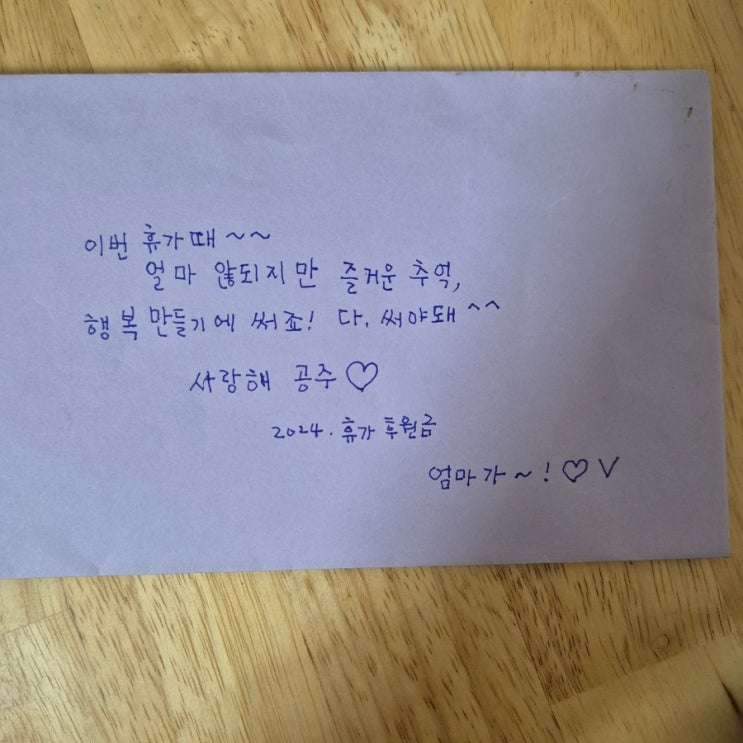 이번 휴가때~~
얼마 않되지만 즐거운 추억,
행복 만들기에 써죠! 다, 써야돼^^
사랑해 공주♡
2024. 휴가 후원금
엄마가~!♡V